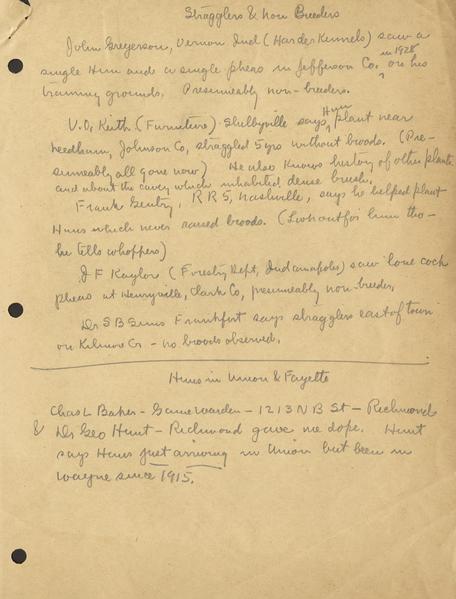 Stragglers & Non Breeders
John Greyerson, Vernon Ind (Harder Kennels) saw a
single Hun and a single pheas in Jefferson Co. in 1928 on his
training grounds. Presumeably non-breeders.
V.O. Keith (Furniture) Shelbyville says Hun plant near
Needham, Johnson Co, straggled 5 yrs without broods. (Pre-
sumeably all gone now) He also knows history of other plants
and about the covey which inhabited dense brush.
Frank Gentry, R R 5, Nashville, says he helped plant
Huns which never raised broods. (Look out for him tho -
he tells whoppers)
J F Kaylor (Forestry Dept, Indianapolis) saw lone cock
pheas at Henryville, Clark Co, presumeably non-breeder.
Dr S B Sims Frankfort says stragglers east of town
on Kilmore Cr - no broods observed.
Huns in Union & Fayette
Chas L Baker - Game Warden - 1213 N B St - Richmond
& Dr Geo Hunt - Richmond gave me dope. Hunt
says Huns just arriving in Union but been in
Wayne since 1915.